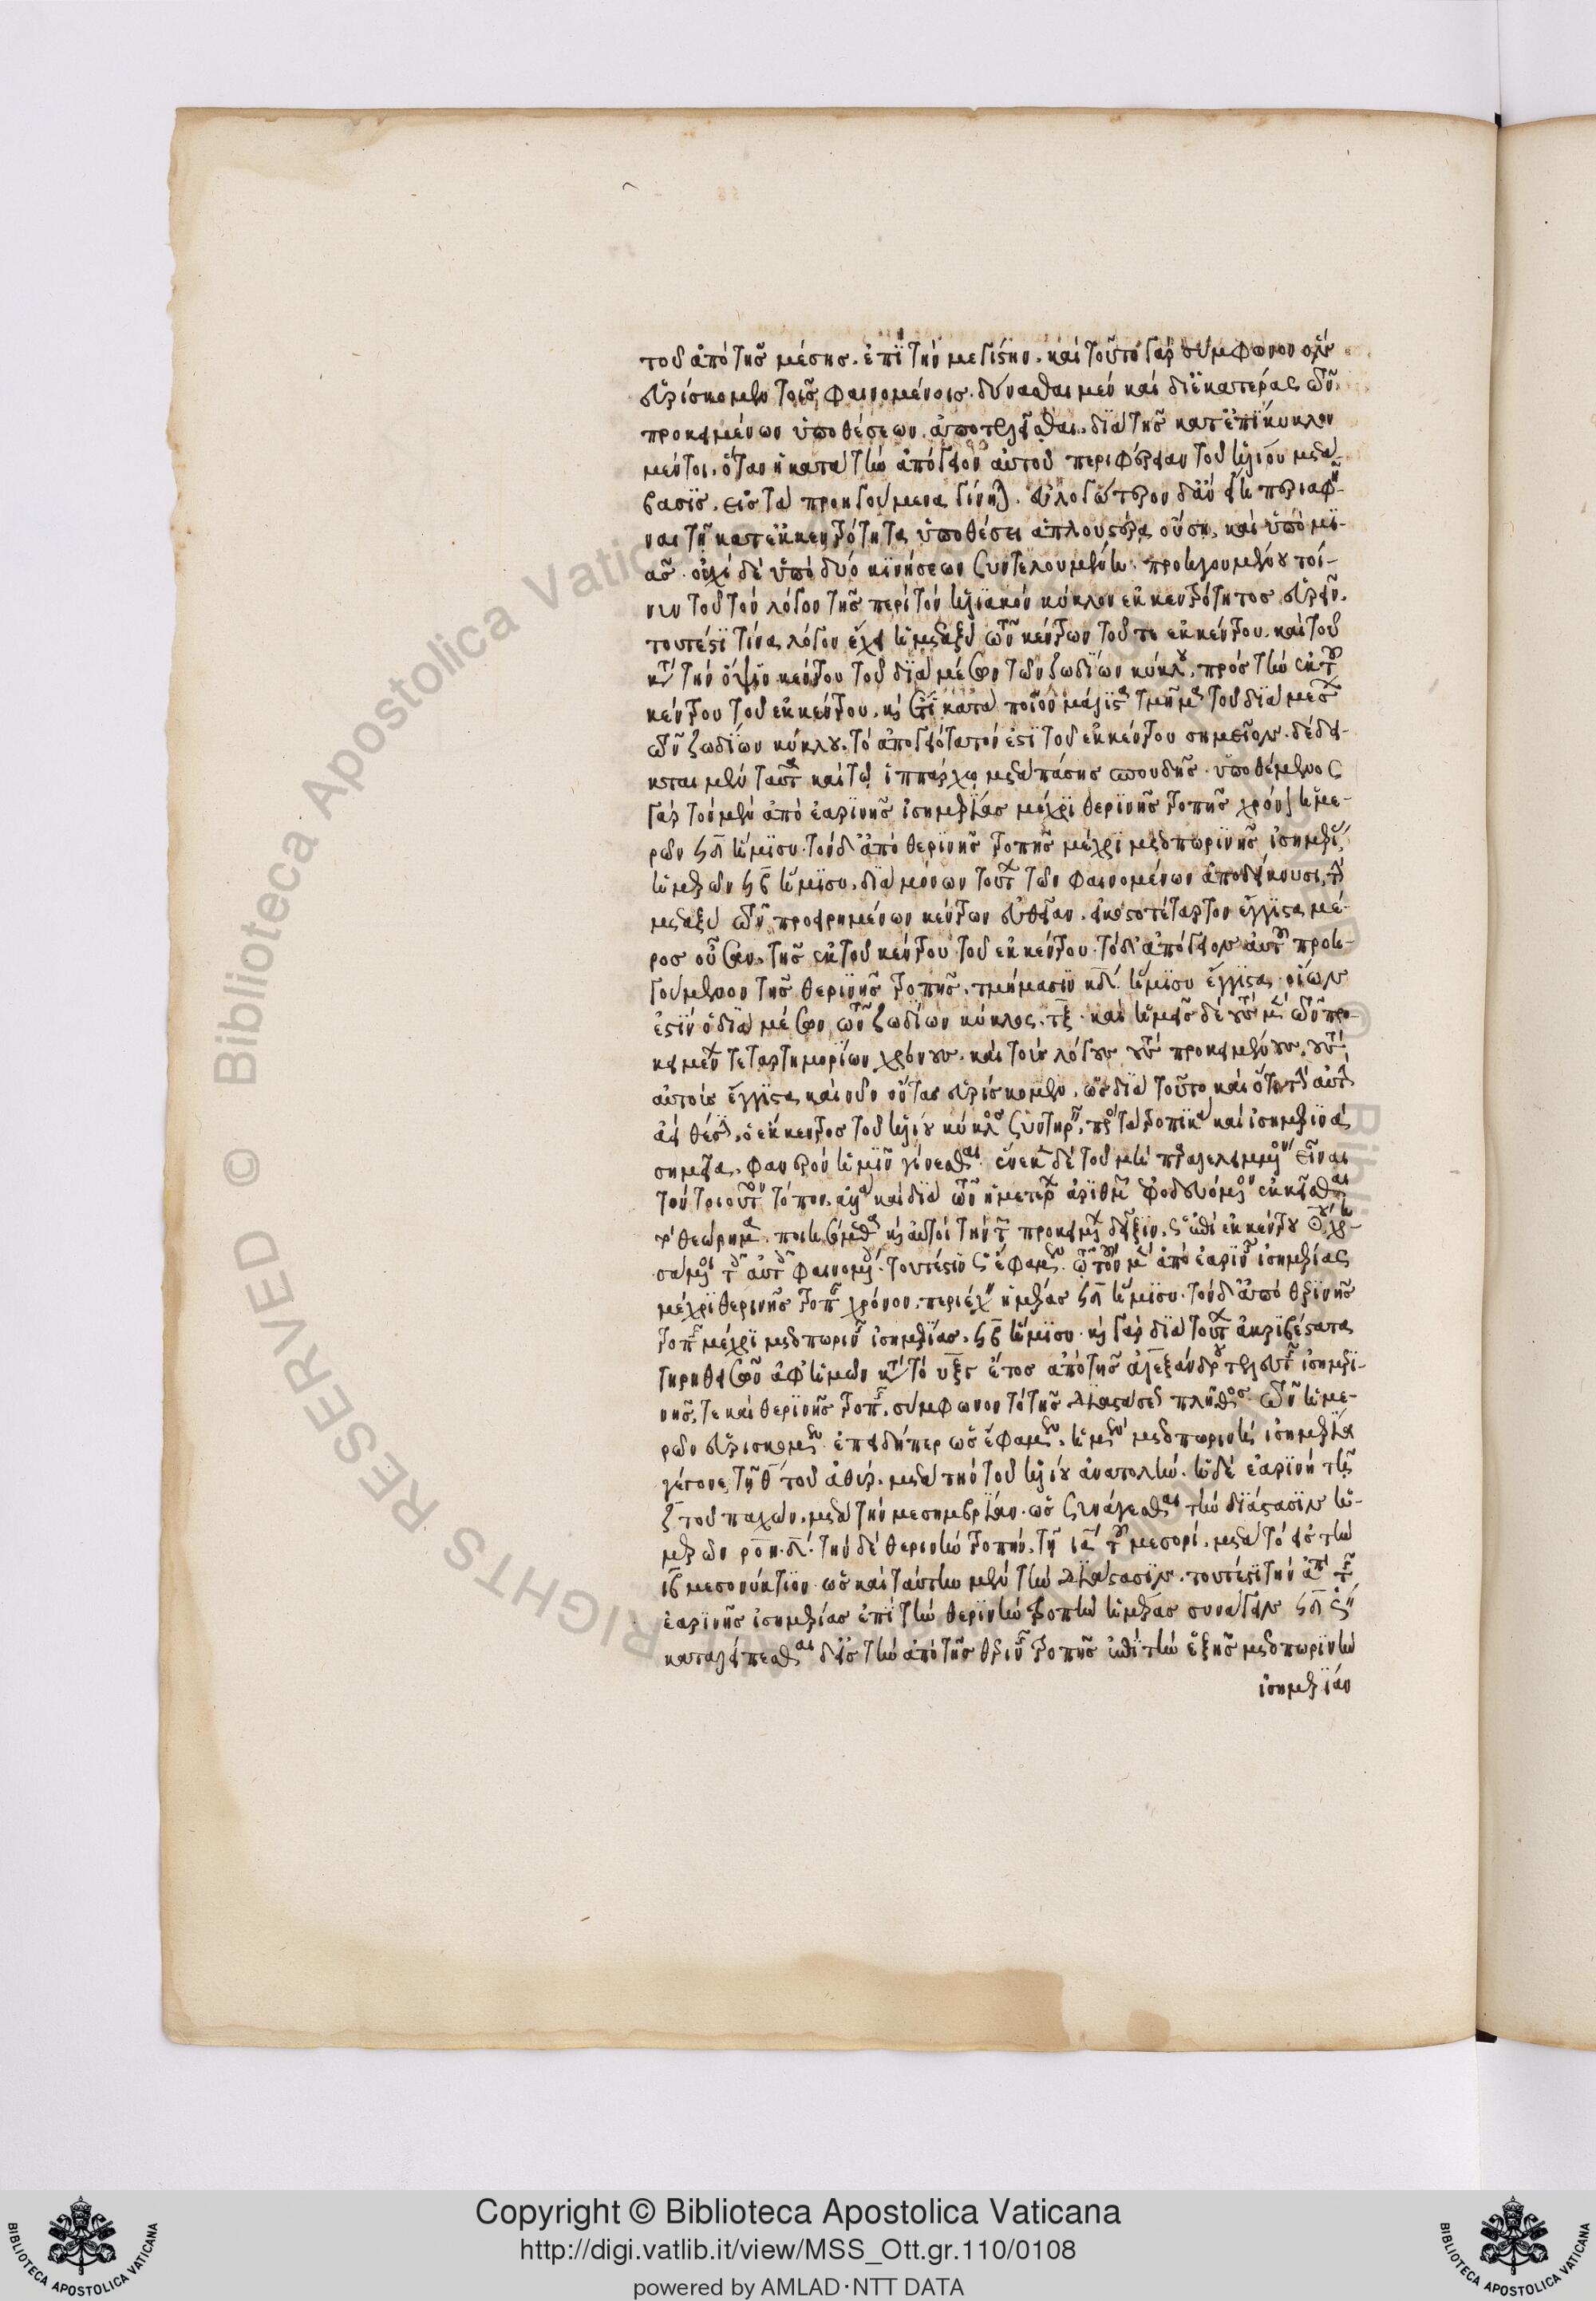 τοῦ ἀπὸ τῆς μέσης. ἐπὶ τὴν μεγίστην. καὶ τοῦτο γὰρ σύμφωνον
εὑρίσκομεν τοῖς φαινομένοις. δύνασθαι μὲν καὶ δι' ἑκατέρας τῶν
προκειμένων ὑποθέσεων. ἀποτελεῖσθαι. διὰ τῆς κατ' ἐπίκυκλον
μέντοι. ὅταν ἡ κατὰ τὴν ἀπόγειον αὐτοῦ περιφέρειαν τοῦ ἡλίου μετά-
βασις. εἰς τὰ προηγούμενα γίνηται. εὐλογώτερον δ' ἂν εἴη περιαφθῆ-
ναι τῇ κατ' ἐκκεντρότητα ὑποθέσει ἁπλουστέρᾳ οὔσῃ. καὶ ὑπὸ μι-
ᾶς. οὐχὶ δὲ ὑπὸ δύο κινήσεων συντελουμένῃ. προηγουμένου τοί-
νυν τοῦ τὸν λόγον τῆς περὶ τὸν ἡλιακὸν κύκλον ἐκκεντρότητος εὑρεῖν.
τουτέστι τίνα λόγον ἔχει ἡ μεταξὺ τῶν κέντρων τοῦ τε ἐκκέντρου. καὶ τοῦ
κατὰ τὴν ὄψιν κέντρου τοῦ διὰ μέσων τῶν ζωδίων κύκλου. πρὸς τὴν ἐκ τοῦ
κέντρου τοῦ ἐκκέντρου. καὶ ἔτι κατὰ ποῖον μάλιστα τμῆμα τοῦ διὰ μέσων
τῶν ζωδίων κύκλου. τὸ ἀπογειότατόν ἐστι τοῦ ἐκκέντρου σημεῖον. δέδει-
κται μὲν ταῦτα καὶ τῷ ἱππάρχῳ μετὰ πάσης σπουδῆς. ὑποθέμενος
γὰρ τὸν μὲν ἀπὸ ἐαρινῆς ἰσημερίας μέχρι θερινῆς τροπῆς χρόνον ἡμε-
ρῶν ϟδ ἥμισυ. τὸν δ' ἀπὸ θερινῆς τροπῆς μέχρι μετοπωρινῆς ἰσημερίας
ἡμερῶν ϟβ ἥμισυ. διὰ μόνων τούτων τῶν φαινομένων ἀποδείκνυσι τὴν
μεταξὺ τῶν προειρημένων κέντρων εὐθεῖαν. εἰκοστοτέταρτον ἔγγιστα μέ-
ρος οὖσαν. τῆς ἐκ τοῦ κέντρου τοῦ ἐκκέντρου. τὸ δ' ἀπόγειον αὐτοῦ προη-
γούμενον τῆς θερινῆς τροπῆς. τμήμασιν κδ. ἥμισυ ἔγγιστα. οἵων
ἐστὶν ὁ διὰ μέσων τῶν ζωδίων κύκλος. τξ. καὶ ἡμεῖς δὲ τοὺς μὲν τῶν προ-
κειμένων τεταρτημορίων χρόνους. καὶ τοὺς λόγους τοὺς προκειμένους. τοὺς
αὐτοὺς ἔγγιστα καὶ νῦν ὄντας εὑρίσκομεν. ὡς διὰ τοῦτο καὶ ὅτι τὴν αὐτὴν
ἀεὶ θέσιν. ὁ ἔκκεντρος τοῦ ἡλίου κύκλος συντηρεῖ. πρὸς τὰ τροπικὰ καὶ ἰσημερινὰ
σημεῖα. φανερὸν ἡμῖν γίνεσθαι. ἕνεκα δὲ τοῦ μὴ παραλελειμμένον εἶναι
τὸν τοιοῦτον τόπον. ἀλλὰ καὶ διὰ τῶν ἡμετέρων ἀριθμῶν ἐφοδευόμενον ἐκκεῖσθαι
τὸ θεώρημα. ποιησόμεθα καὶ αὐτοὶ τὴν τῶν προκειμένων δεῖξιν. ὡς ἐπὶ ἐκκέντρου
σάμενοι τοῖς αὐτοῖς φαινομένοις. τουτέστιν ὡς ἔφαμεν. τῷ τὸν μὲν ἀπὸ ἐαρινῆς ἰσημερίας
μέχρι θερινῆς τροπῆς χρόνον. περιέχειν ἡμέρας ϟδ ἥμισυ. τὸν δ' ἀπὸ θερινῆς
τροπῆς μέχρι μετοπωρινῆς ἰσημερίας. ϟβ ἥμισυ. καὶ γὰρ διὰ τούτων ἀκριβέστατα
τηρηθεισῶν ὑφ' ἡμῶν κατὰ τὸ υξγ ἔτος ἀπὸ τῆς ἀλεξάνδρου τελευτῆς ἰσημερι-
νῆς τε καὶ θερινῆς τροπῆς. σύμφωνον τὸ τῆς διαστάσεως πλῆθος. τῶν ἡμε-
ρῶν εὑρίσκομεν. ἐπειδήπερ ὡς ἔφαμεν. ἡ μὲν μετοπωρινὴ ἰσημερία
γέγονε τῇ θ τοῦ ἀθύρ. μετὰ τὴν τοῦ ἡλίου ἀνατολήν. ἡ δὲ ἐαρινὴ τῇ
ζ τοῦ παχών. μετὰ τὴν μεσημβρίαν. ὡς συνάγεσθαι τὴν διάστασιν ἡ-
μερῶν ροη. δ. τὴν δὲ θερινὴν τροπὴν. τῇ ια τοῦ μεσορί. μετὰ τὸ εἰς τὴν
ιβ μεσονύκτιον. ὡς καὶ ταύτην μὲν τὴν διάστασιν. τουτέστι τὴν ἀπὸ τῆς
ἐαρινῆς ἰσημερίας ἐπὶ τὴν θερινὴν τροπὴν ἡμέρας συνάγειν ϟδ
καταλείπεσθαι δ' εἰς τὴν ἀπὸ τῆς θερινῆς τροπῆς ἐπὶ τὴν ἑξῆς μετοπωρινὴν
ἰσημερίαν
Copyright © Biblioteca Apostolica Vaticana
http://digi.vatlib.it/view/MSS_Ott.gr.110/0108
powered by AMLAD·NTT DATA